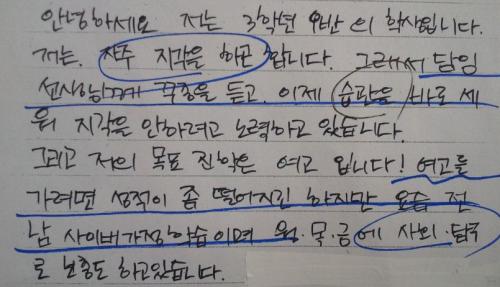 안녕하세요 저는 3학년 9반 의 학생입니다.
저는. 자주 지각을 하곤 합니다. 그래서 담임
선생님께 꾸중을 듣고. 이제 습관을 바로 세
워 지각을 안하려고 노력하고 있습니다.
그리고 저의 목표 진학은 여고 입니다! 여고를
가려면 성적이 좀 떨어지긴 하지만 요즘 전
남 사이버가정학습이며 월·목·금에 사회·탐구
로 보충도 하고있습니다.